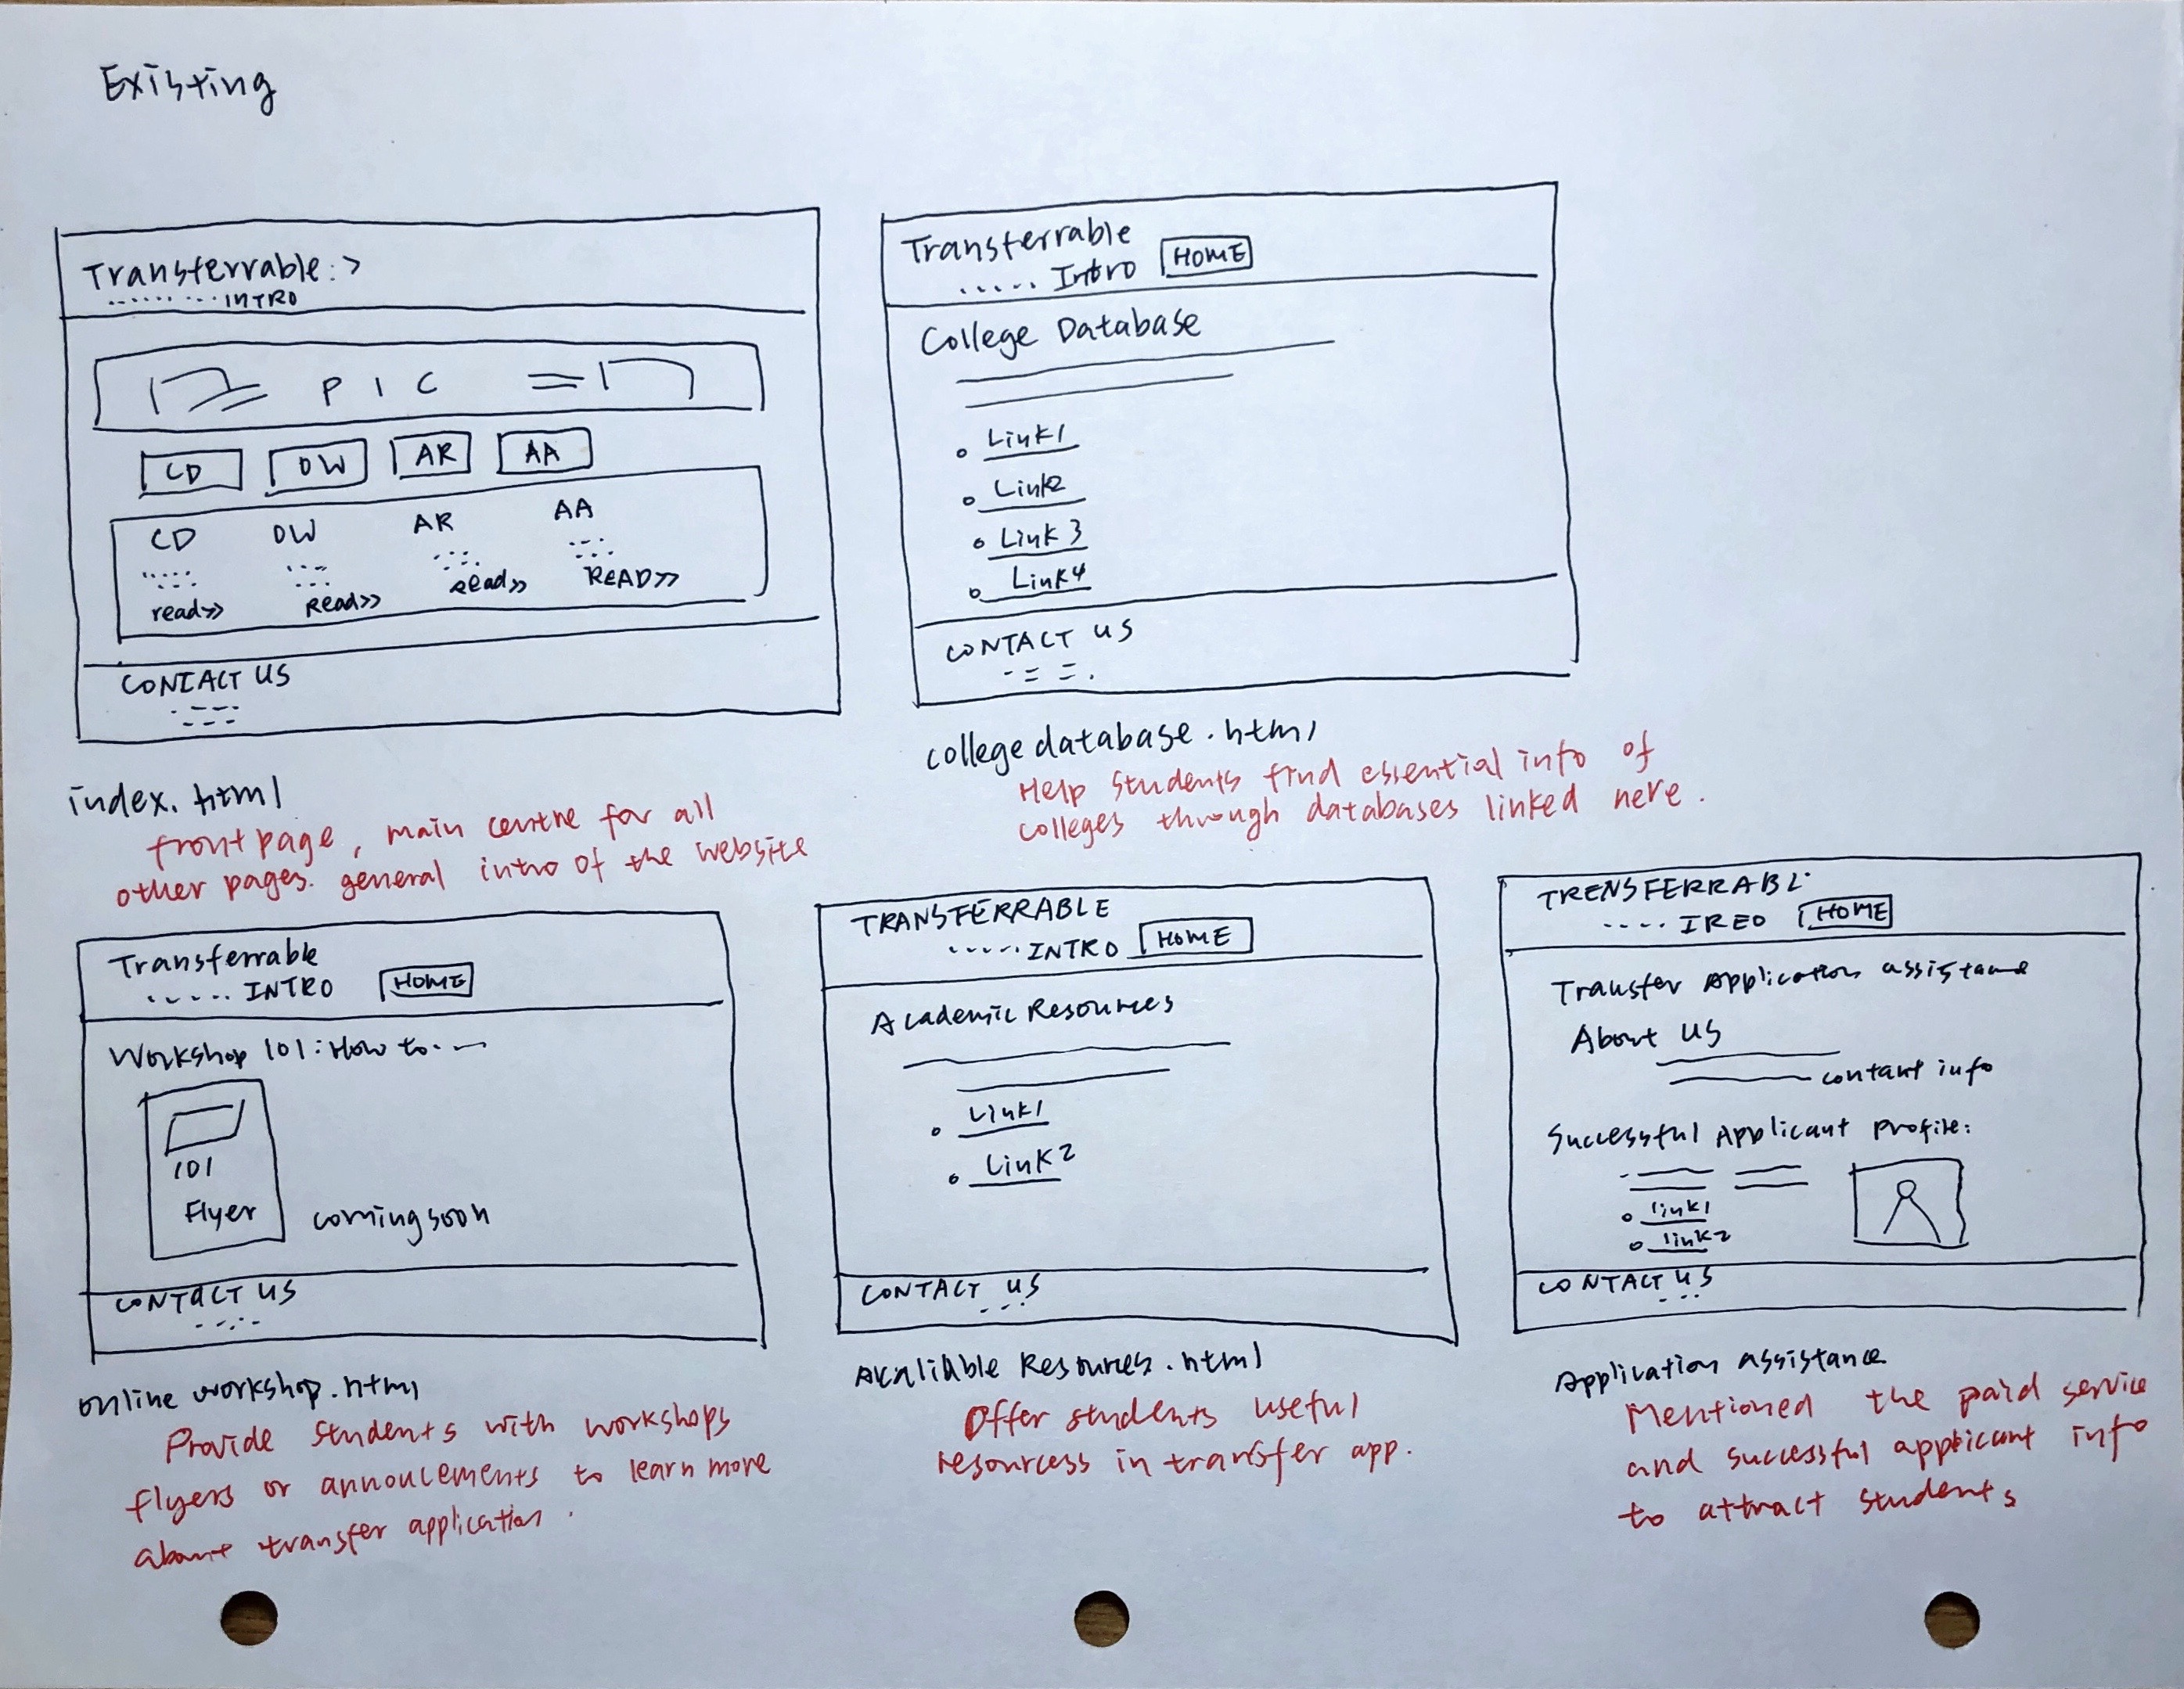 Existing
Transferrable :>
...... ... INTRO
P I C
CD OW AR AA
CD OW AR AA
read>> Read>> Read>> READ>>
CONTACT US
index.html
front page, main centre for all
other pages. general intro of the website
Transferrable
..... Intro HOME
College Database
Link1
Link2
Link 3
Link4
CONTACT US
college database.html
Help students find essential info of
colleges through databases linked here.
Transferrable
..... INTRO HOME
Workshop 101: How to...
101
Flyer
coming soon
CONTACT US
online workshop.html
Provide students with workshops
flyers or annoucements to learn more
about transfer application.
TRANSFERRABLE
..... INTRO HOME
Academic Resources
Link1
Link2
CONTACT US
...
Resources.html
Offer students useful
resourcess in transfer app.
TRENSFERRABL
.... HOME
Transfer Application assistance
About us
contant info
Successful Applicant profile:
link1
link2
CONTACT US
...
Application assistance
Mentioned the paid service
and successful applicant info
to attract students